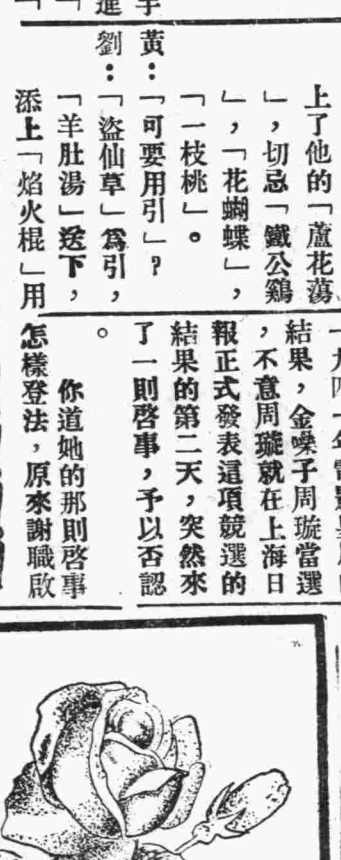 上了他的「蘆花蕩
」，切忌「鐵公鷄
」，「花蝴蝶」，
「一枝桃」。
黃：「可要用引」？
劉：「盜仙草」爲引，
「羊肚湯」送下，
添上「焰火棍」用
結果，金嗓子周璇當選
，不意周璇就在上海日
報正式發表這項競選的
結果的第二天，突然來
了一則啓事，予以否認
。
你道她的那則啓事
怎樣登法，原來謝職啟